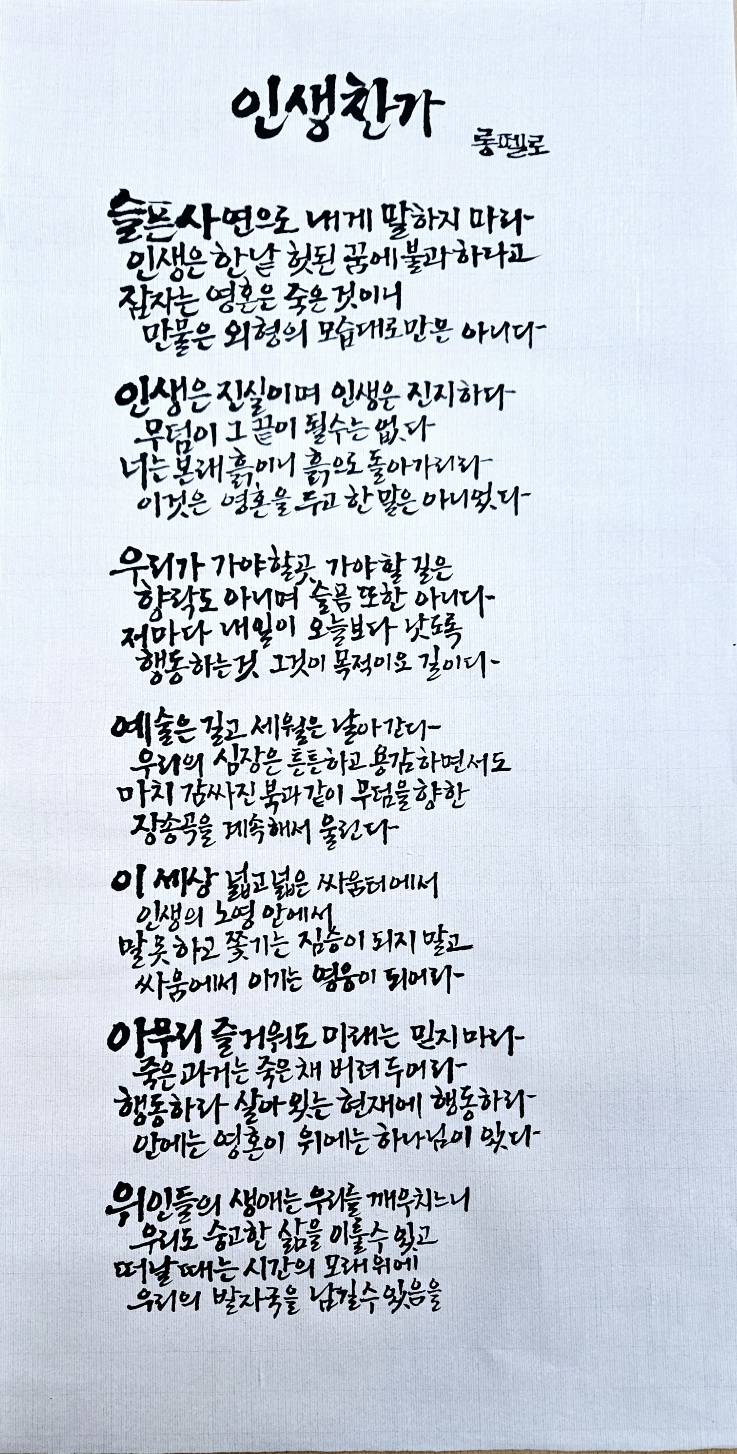 인생찬가
롱펠로
슬픈 사연으로 내게 말하지 마라
인생은 한낱 헛된 꿈에 불과하다고
잠자는 영혼은 죽은 것이니
만물은 외형의 모습대로만은 아니다
인생은 진실이며 인생은 진지하다
무덤이 그 끝이 될수는 없다
너는 본래 흙이니 흙으로 돌아가리라
이것은 영혼을 두고 한 말은 아니었다
우리가 가야할곳, 가야할 길은
향락도 아니며 슬픔 또한 아니다
저마다 내일이 오늘보다 낫도록
행동하는것 그것이 목적이요 길이다
예술은 길고 세월은 날아간다
우리의 심장은 튼튼하고 용감하면서도
마치 감싸진 북과같이 무덤을 향한
장송곡을 계속해서 울린다
이 세상 넓고넓은 싸움터에서
인생의 노영 안에서
말못하고 쫓기는 짐승이 되지 말고
싸움에서 이기는 영웅이 되어라
아무리 즐거워도 미래는 믿지마라
죽은과거는 죽은채 버려두어라
행동하라 살아있는 현재에 행동하라
안에는 영혼이 위에는 하나님이 있다
위인들의 생애는 우리를 깨우치느니
우리도 숭고한 삶을 이룰수 있고
떠날때는 시간의 모래위에
우리의 발자국을 남길수있음을